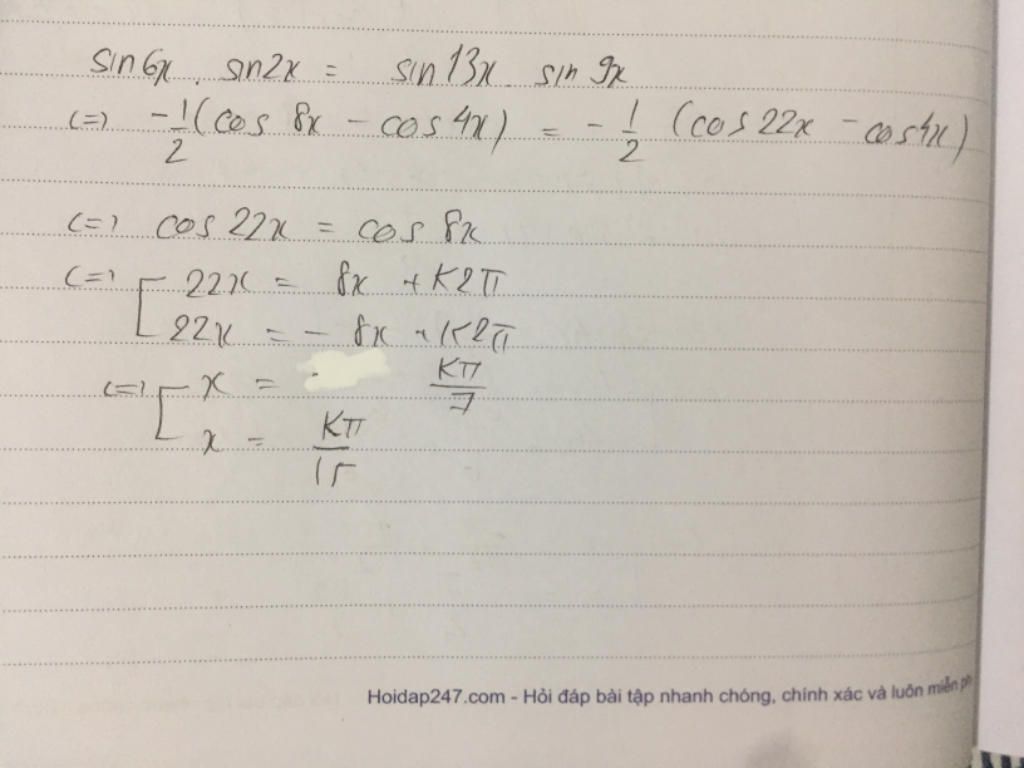 sin6x . sin2x = sin13x . sin9x
(=) -1/2 (cos 8x - cos 4x) = - 1/2 (cos 22x - cos4x)
(=) cos 22x = cos 8x
(=) [ 22x = 8x + K2π
22x = - 8x + K2π
(=) [ x = Kπ/7
x = Kπ/15
Hoidap247.com - Hỏi đáp bài tập nhanh chóng, chính xác và luôn miễn